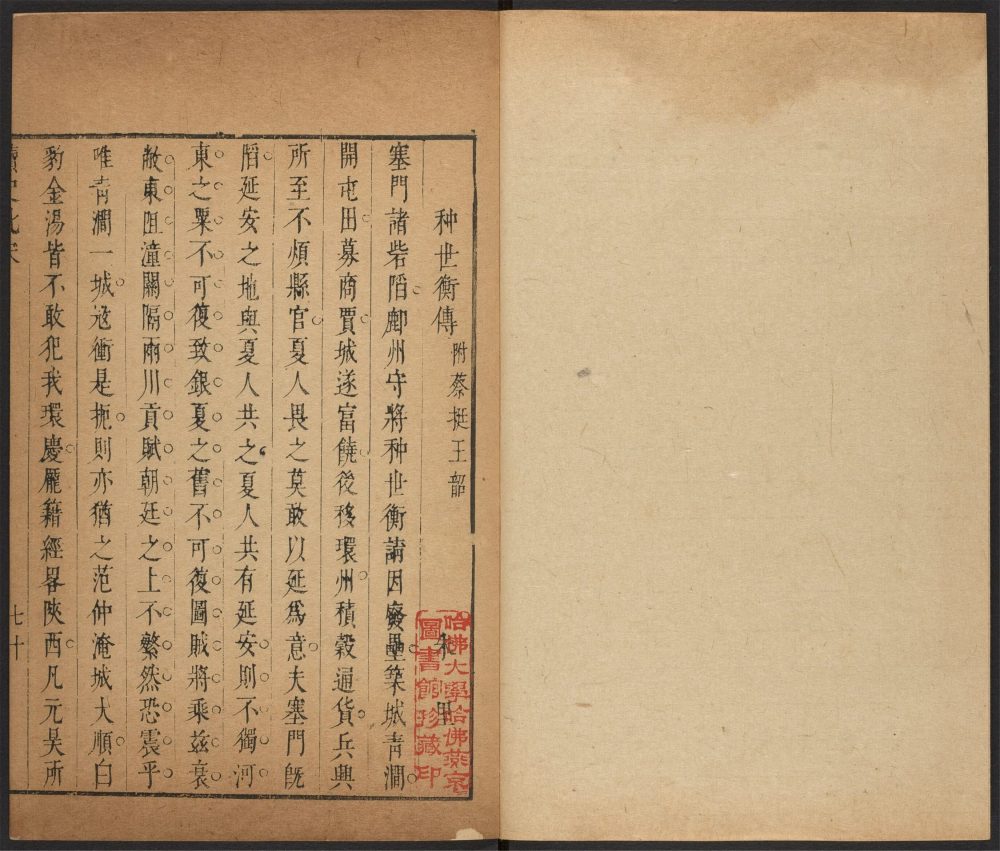 种世衡傳附蔡挺王韶
塞門諸砦陷鄜州守將种世衡請因廢壘築城青澗
開屯田募商賈城遂富饒後移環州積穀通貨兵興
所至不煩縣官夏人畏之莫敢以延爲意夫塞門旣
陷延安之地與夏人共之夏人共有延安則不獨河
東之粟不可復致銀夏之舊不可復圖賊將乘茲衰
敝東阻潼關隔兩川貢賦朝廷之上不繁然恐震乎
唯青澗一城冦衝是扼則亦猶之范仲淹城大順白
豹金湯皆不敢犯我環慶龐籍經畧陝西凡元昊所
七十
哈佛大學哈佛燕京
圖書館珍藏印